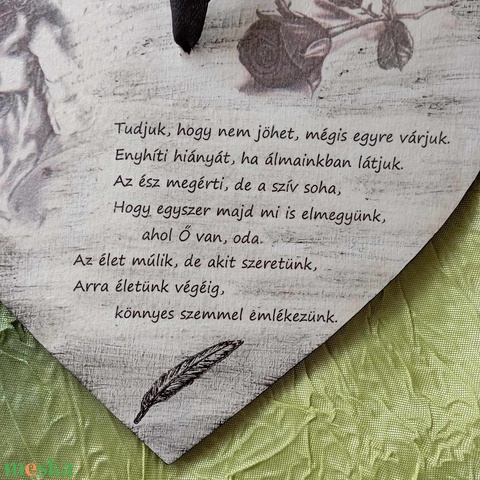 Tudjuk, hogy nem jöhet, mégis egyre várjuk.
Enyhíti hiányát, ha álmainkban látjuk.
Az ész megérti, de a szív soha,
Hogy egyszer majd mi is elmegyünk,
ahol Ő van, oda.
Az élet múlik, de akit szeretünk,
Arra életünk végéig,
könnyes szemmel emlékezünk.
meska